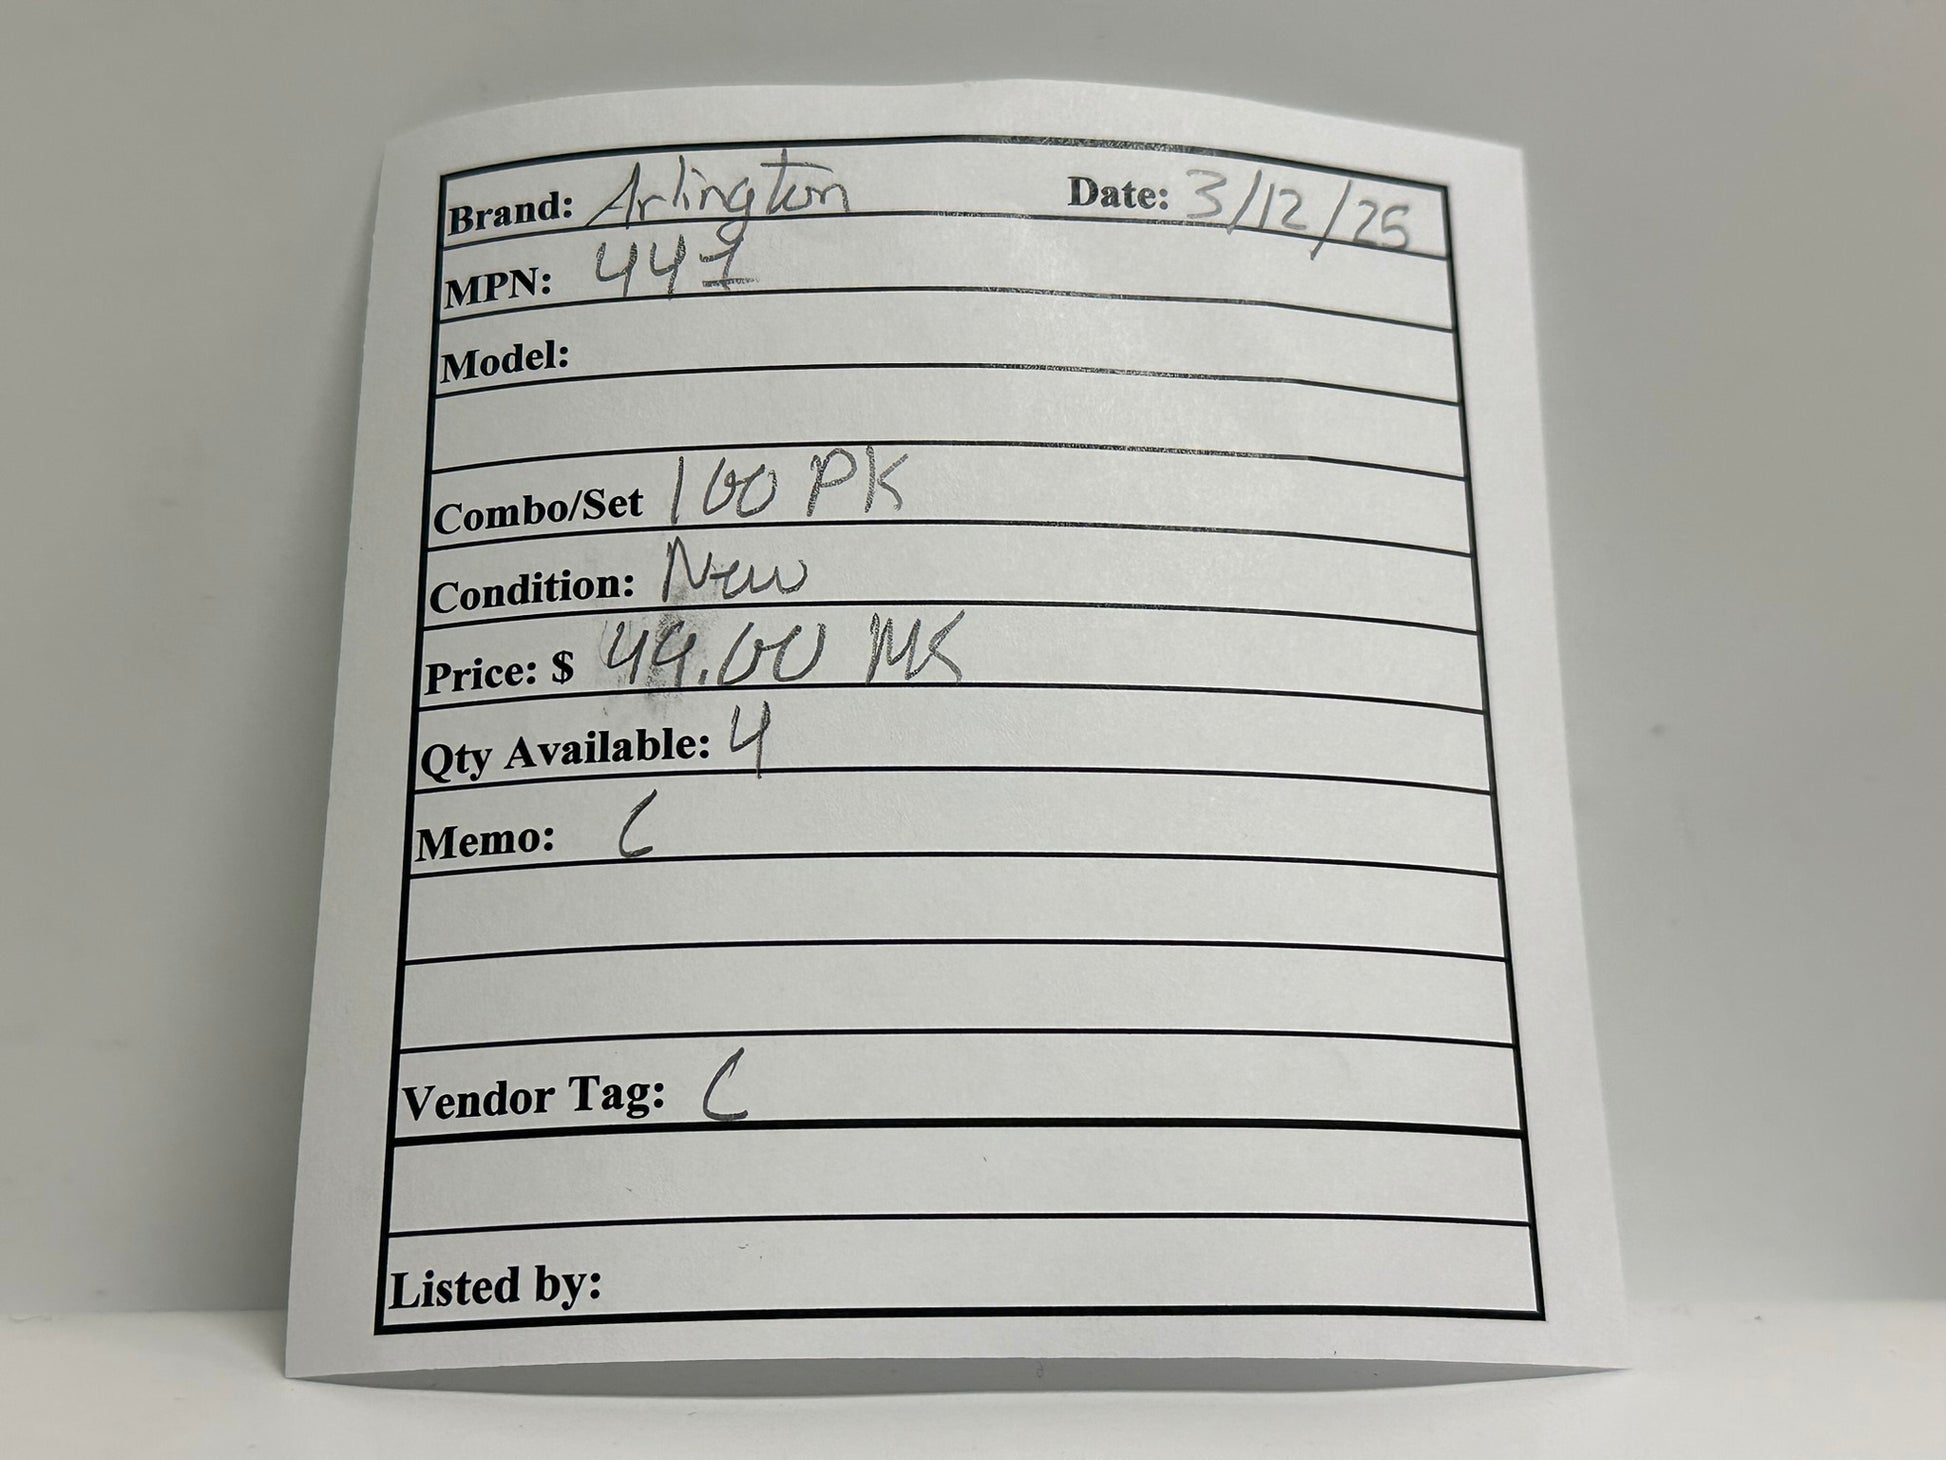 Brand: Arlington Date: 3/12/25
MPN: 441
Model:
Combo/Set 100 PK
Condition: New
Price: $ 49.00 MK
Qty Available: 4
Memo: C
Vendor Tag: C
Listed by: